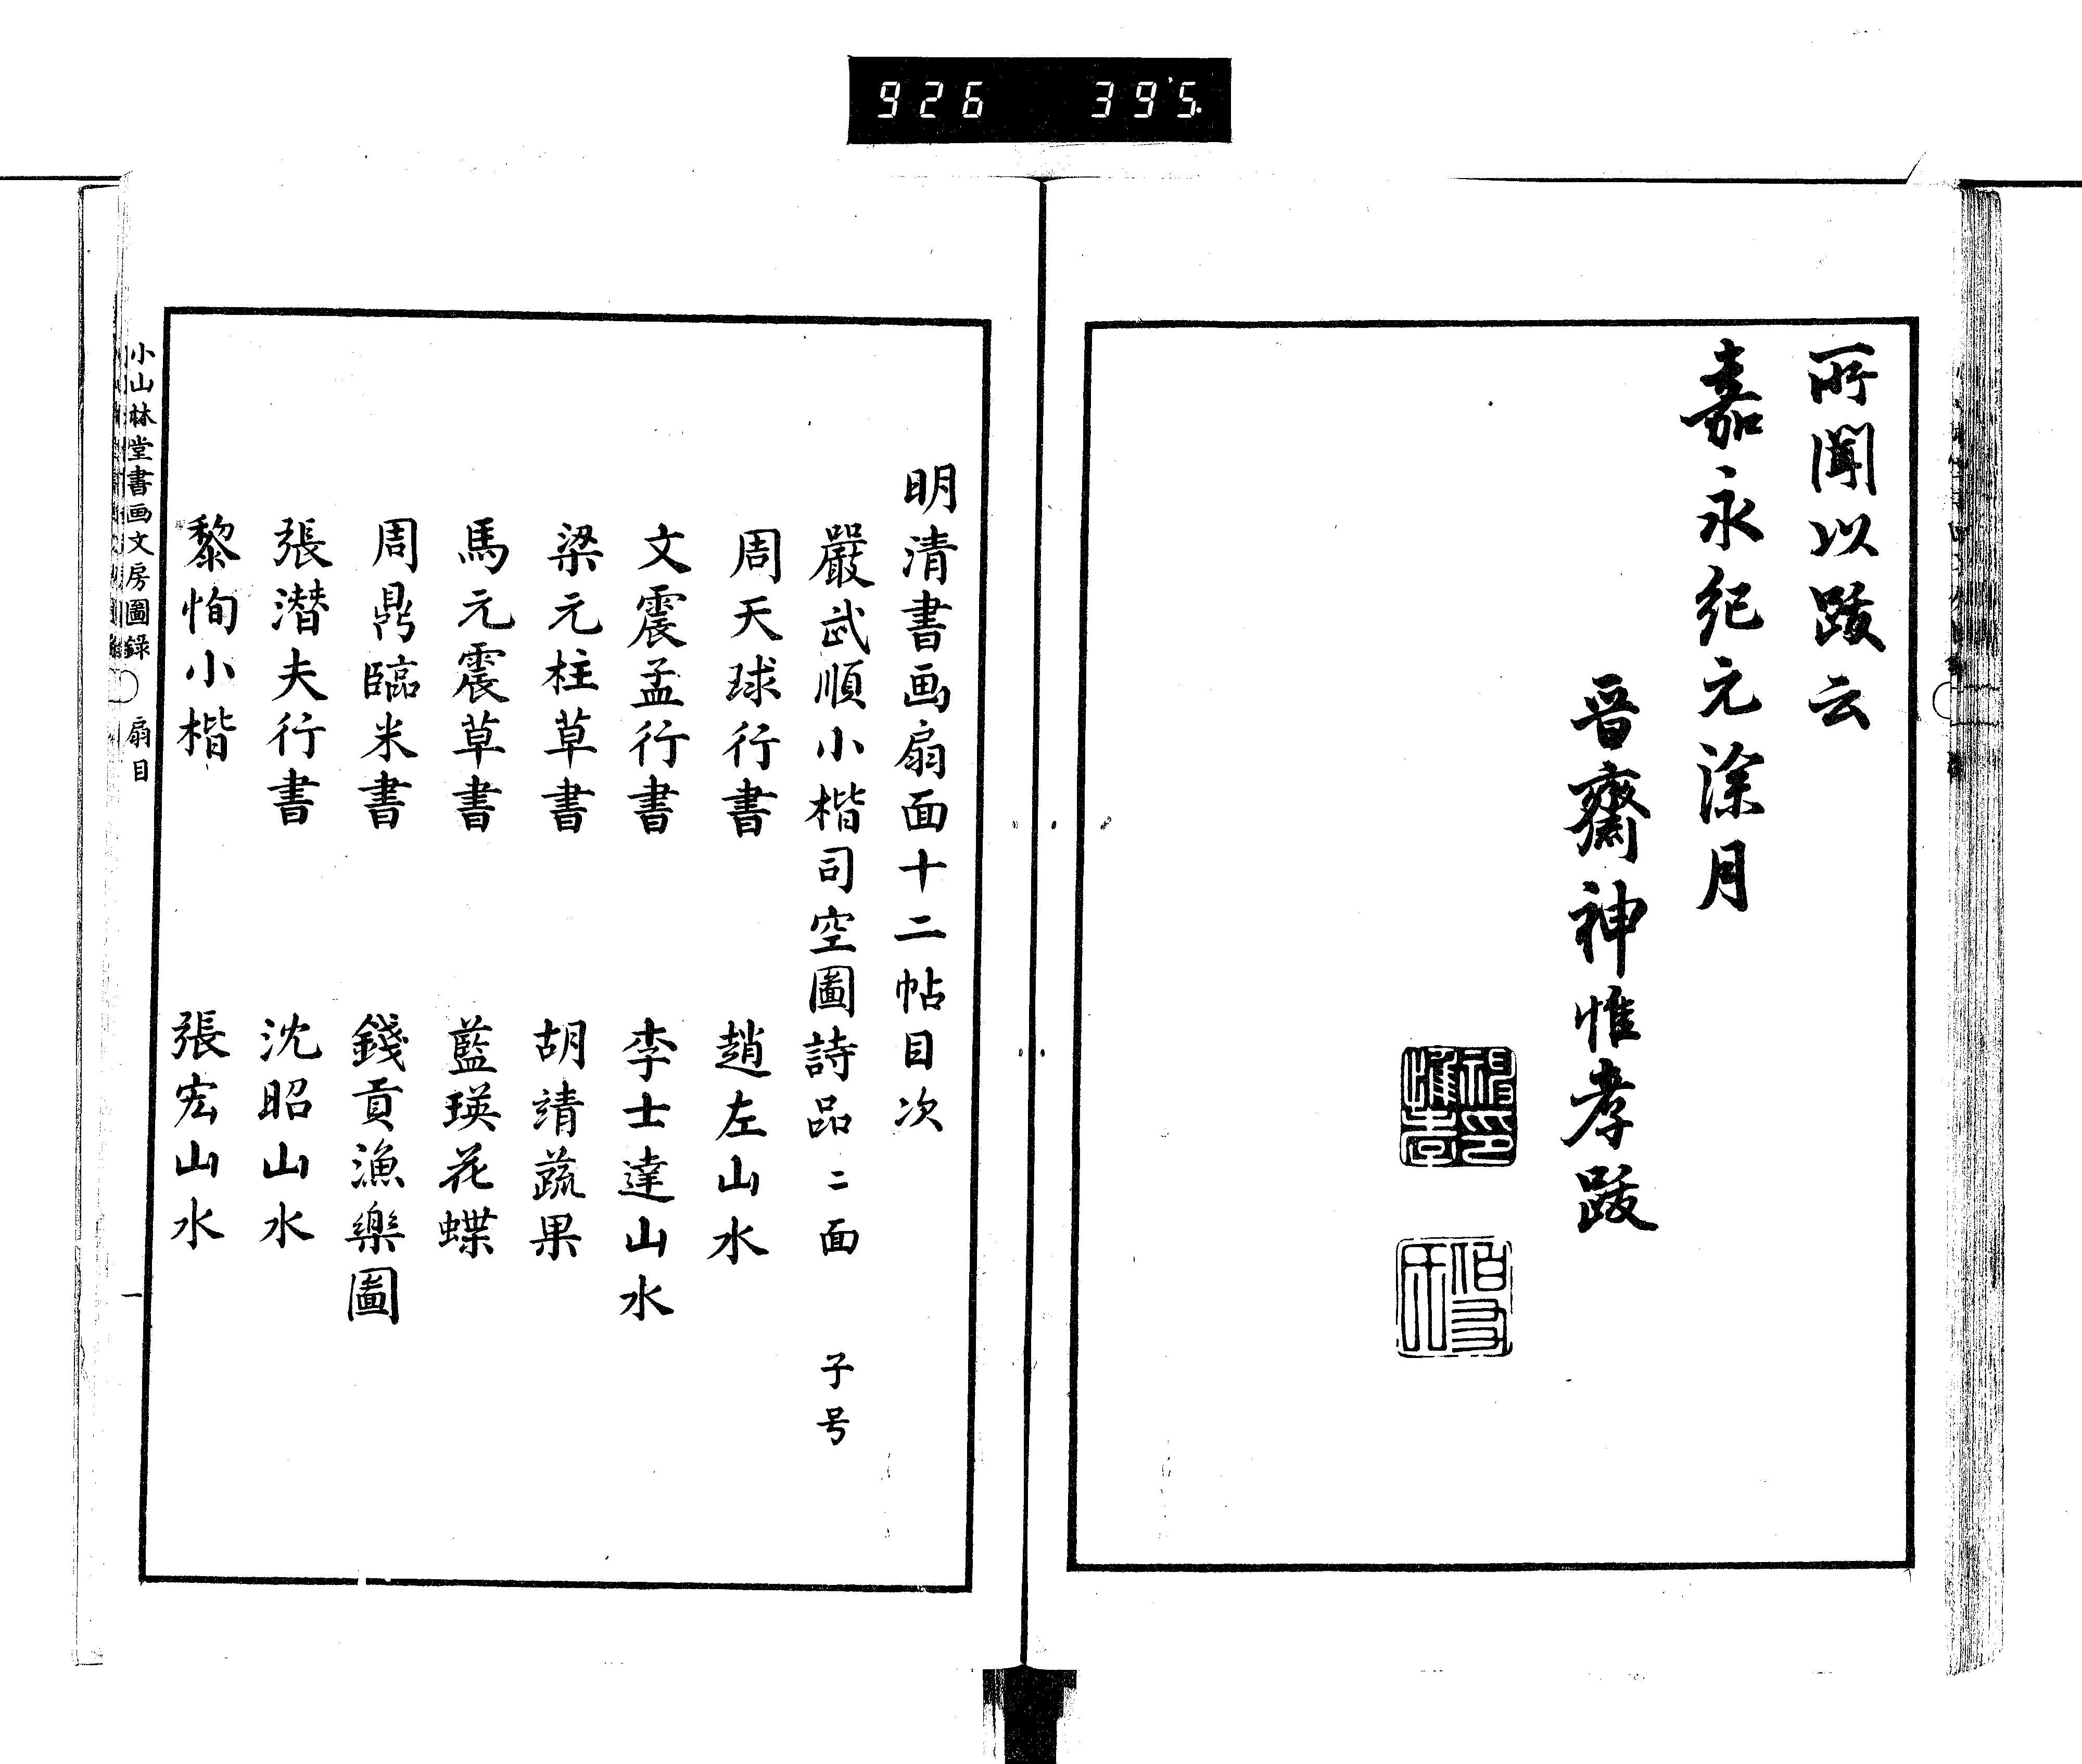 926 395
所聞以跋云
嘉永紀元涂月
晋齋神惟孝跋
神印惟孝
明清書画扇面十二帖目次
嚴武順小楷司空圖詩品二面 子号
周天球行書 趙左山水
文震孟行書 李士達山水
梁元柱草書 胡靖蔬果
馬元震草書 藍瑛花蝶
周鼎臨米書 錢貢漁樂圖
張潛夫行書 沈昭山水
黎恂小楷 張宏山水
小山林堂書画文房圖錄 扇目 一